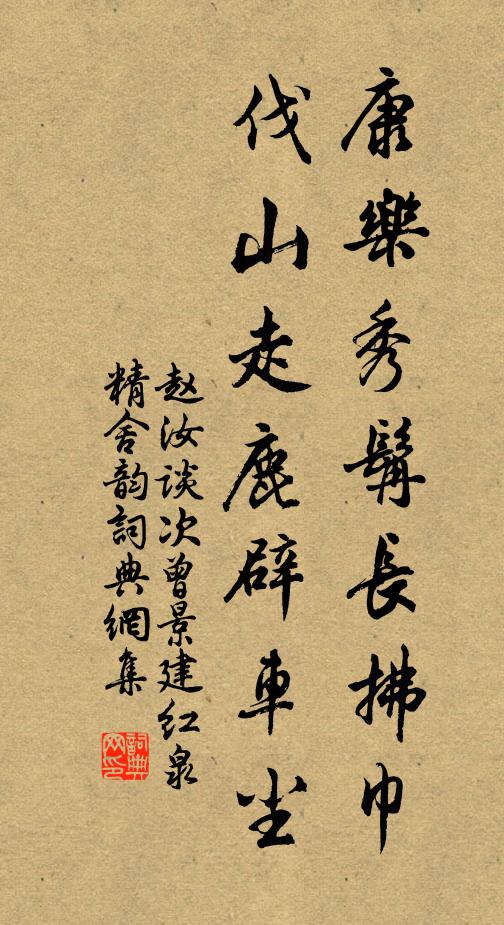 康樂秀髯長拂巾
伐山走鹿辟車尘
赵汝谈次曾景建红泉
精舍韵詞典網集
詞典网印